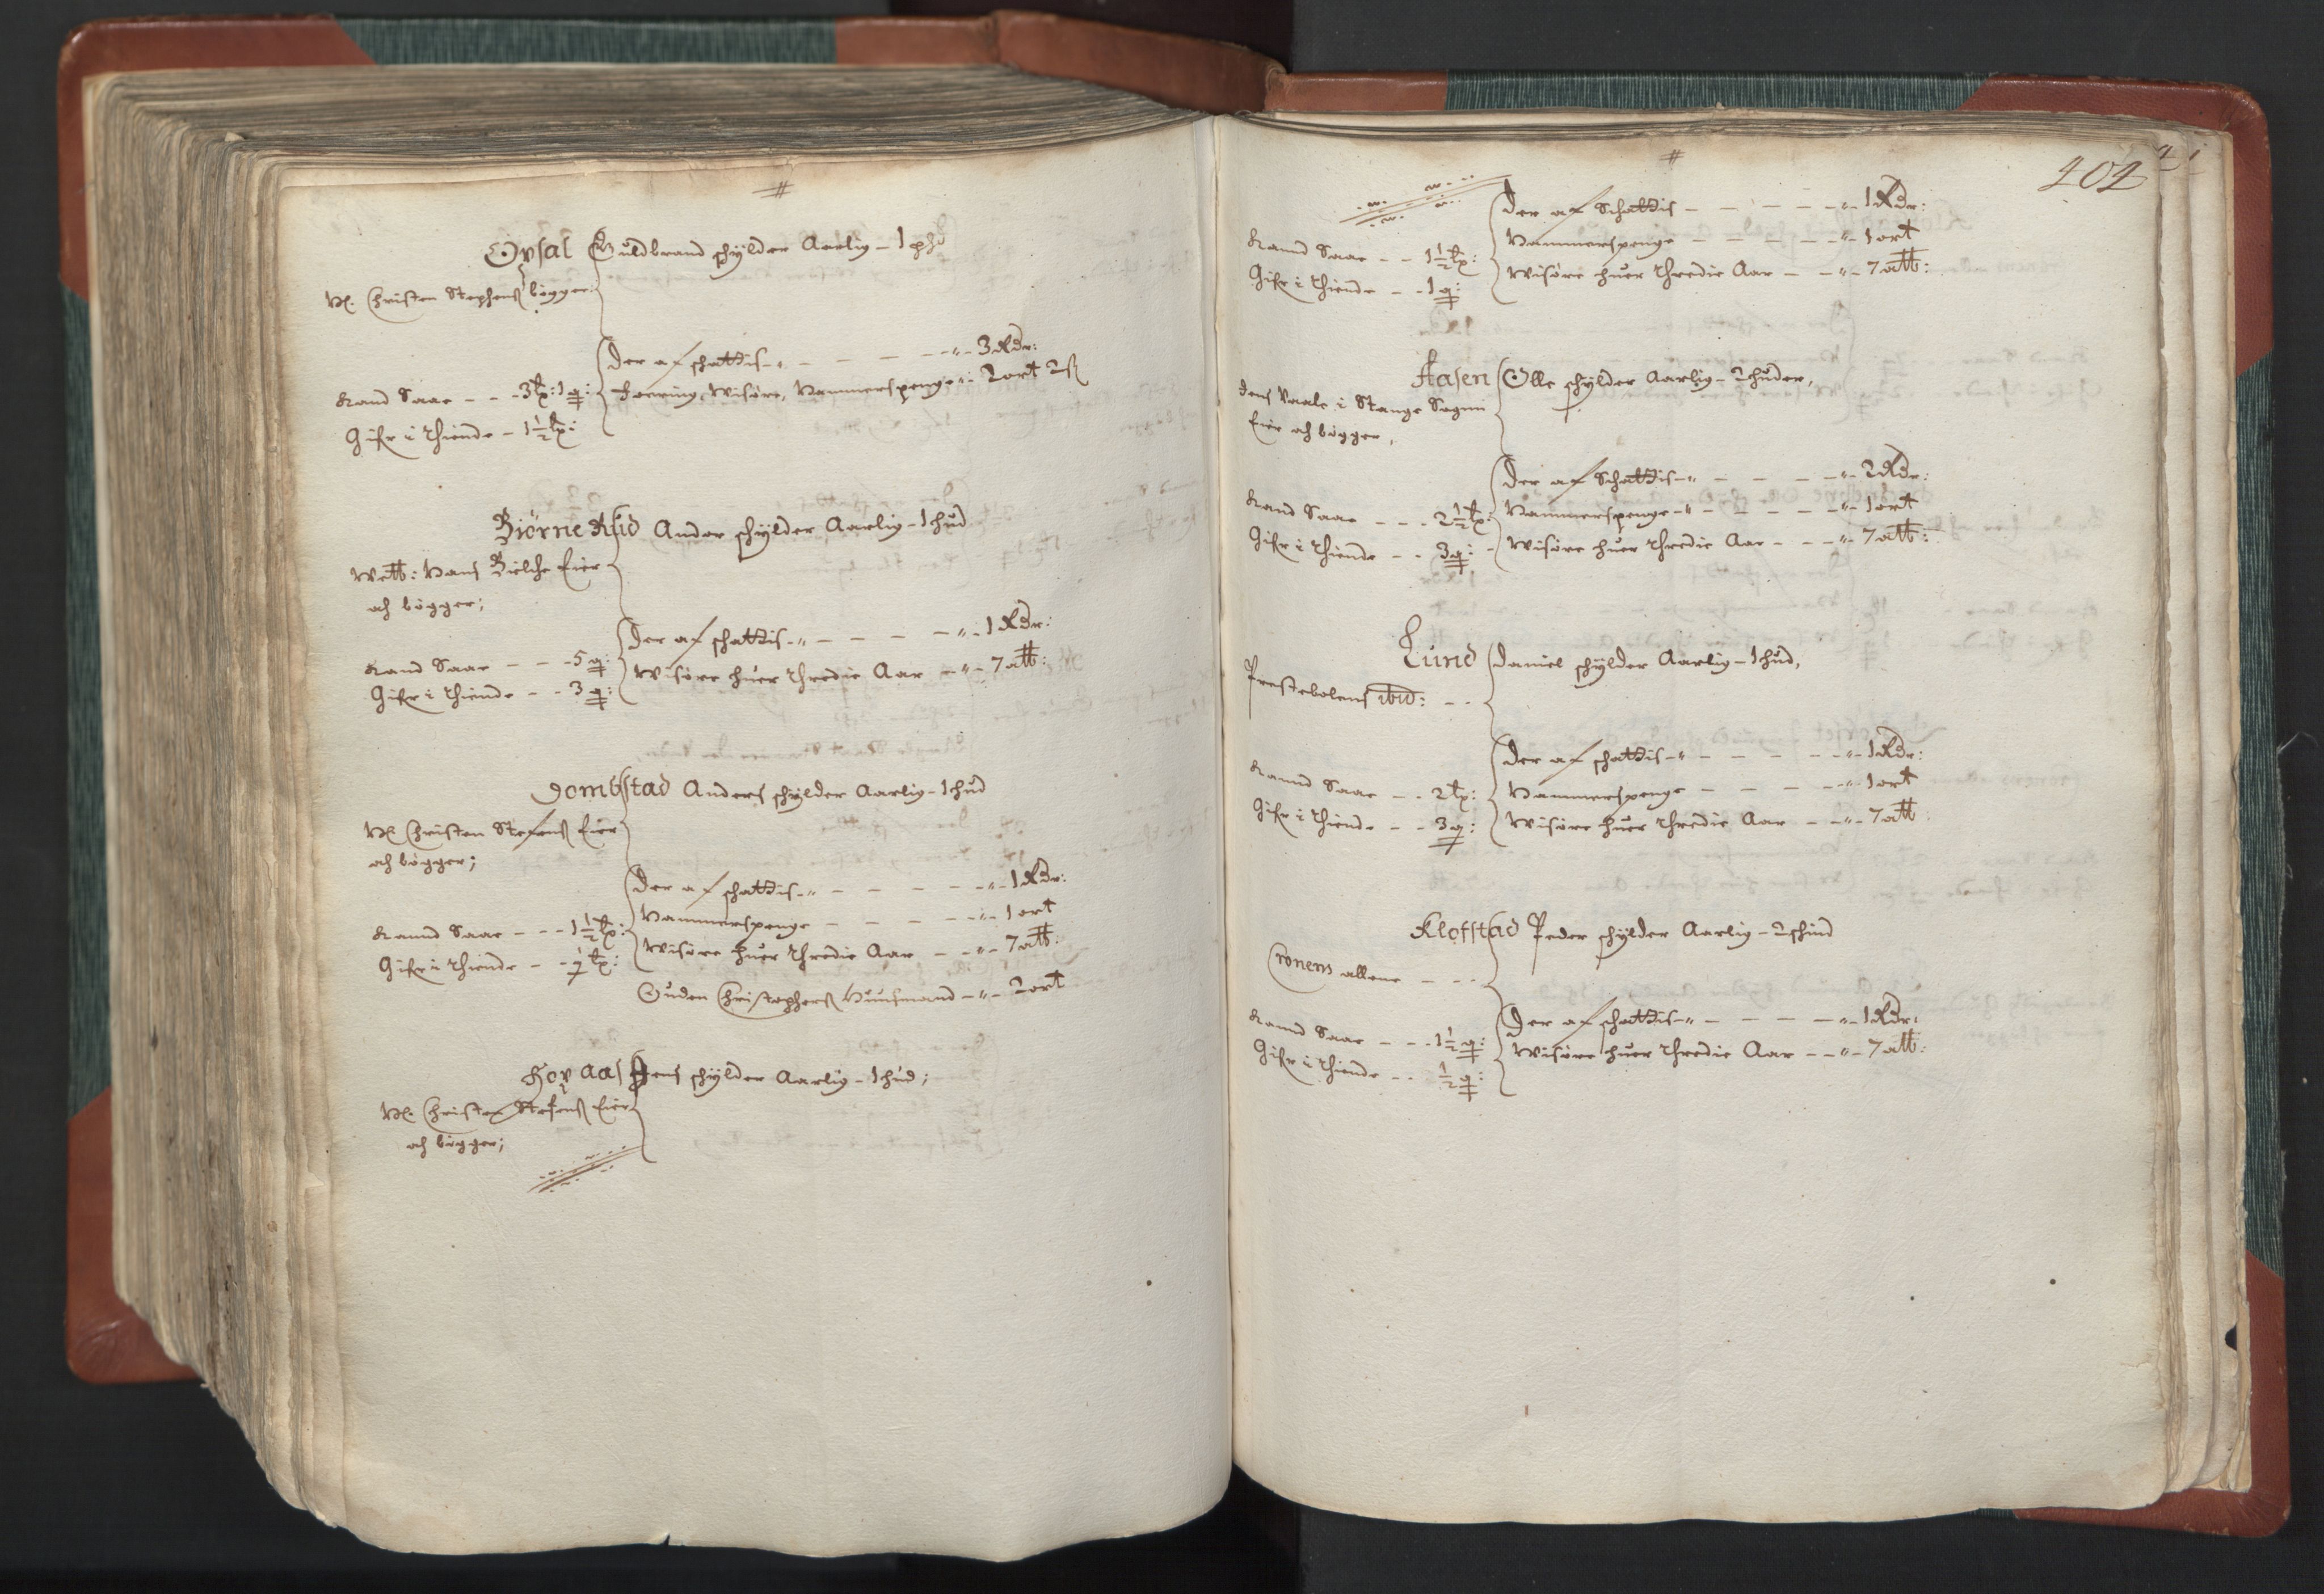 #
Opsal Guldbrand schylder Aarlig - 1 phd
H. Christen Stephenß bögger:
Der af schattis - - - - - 3 Rdr:
Foering, Wisöre, Hammerspenge - 2 ort 2 ß
Kand Saae - - - 3 tp: 1 q:
Gifr i thiende - 1½ tp:
Biörne Rud Ander schylder Aarlig - 1 hud
Welb: Hans Bielche Eier
och bögger;
Der af schattis - - - - - 1 Rdr:
Wisöre huer thredie Aar - - 7 alb:
Kand Saae - - - 5 q:
Gifr i thiende - - 3 q:
Dombstad Anders schylder Aarlig - 1 hud
H. Christen Stefenß Eier
och bögger;
Der af schattis - - - - - 1 Rdr:
Hammerspenge - - - - - 1 ort
Wisöre huer thredie Aar - - 7 alb:
Kannd Saae - - - 1½ tp:
Gifr i thiende - - ½ tp:
Guden Christophers Huusmand - - 2 ort
Hov Aas Jens schylder Aarlig - 1 hud;
H. Christen Stefenß Eier
och bögger;
#
402
Der af Schattis - - - - - 1 Rdr:
Hammerspenge - - - - - 1 ort
Wisöre huer thredie Aar - - 7 alb:
Kannd Saae - - 1½ tp:
Gifr i thiende - - 1 q:
Aasen Olle schylder Aarlig - 2 huder,
Jens Vaale i Stange Sognn
Eier och bögger,
Der af Schattis - - - - - 2 Rdr:
Hammerspenge - - - - - 1 ort
Wisöre huer thredie Aar - - - 7 alb:
Kand Saae - - - 2½ tp:
Gifr i thiende - - 3 q:
Lund Daniel schylder Aarlig - 1 hud,
Prestebolens ibid: - -
Der af schattis - - - - - 1 Rdr:
Hammerspenge - - - - - 1 ort
Wisöre huer thredie Aar - - 7 alb
Kannd Saae - - 2 tp:
Gifr i thiende - - 3 q:
Klofstad Peder schylder Aarlig - 2 schind
Cronens allene - - -
Der af schattis - - - - - 1 Rdr:
Wisöre huer thredie Aar - - - 7 alb:
Kannd Saae - - - 1½ q:
Gifr i thiende - - ½ q: